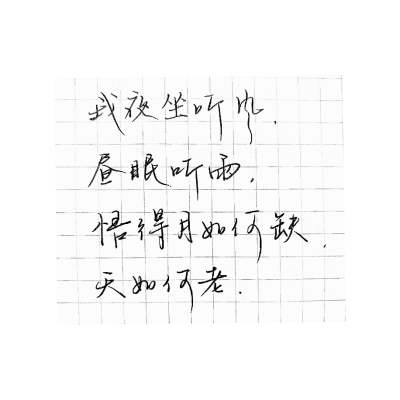 我夜坐听风.
昼眠听雨.
悟得月如何缺.
天如何老.